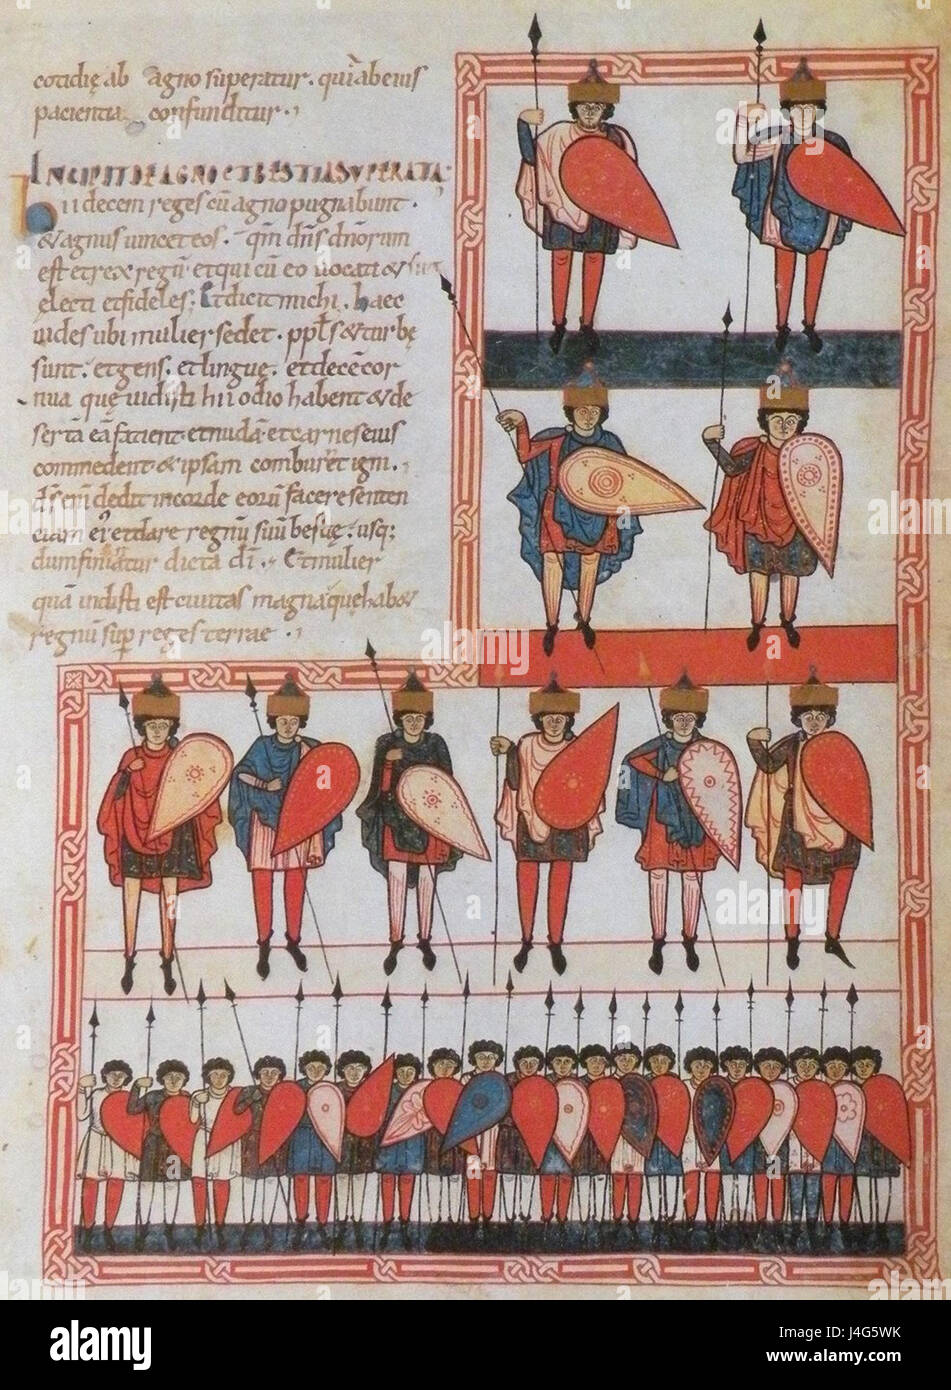 cotidię ab agno superatur. quia beius
pacientia confunditur.
INCIPIT DE AGNO ET BESTIA SUPERATA:
Hii decem reges cū agno pugnabunt.
& agnus uincet eos. qm̄ dn̄s dn̄orum
est et rex regū et qui cū eo uocati & sut
ęlecti et fideles; Et dicit michi. haec
uides ubi mulier sedet. ppl̄s & turbę
sunt. et gens. et linguę. et decē cor
nua quę uidisti hii odio habent & de
sertā eā facient et nudā et carnes eius
commedent & ipsam comburent igni.
ds̄ enī dedit in corde eorū facere senten
ciam ei' et dare regnū suū bestię. usq;
dum finiūtur dicta dī. Et mulier
quā uidisti est ciuitas magna quę hab&
regnū sup reges terrae.
alamy
Image ID: J4G5WK
www.alamy.com